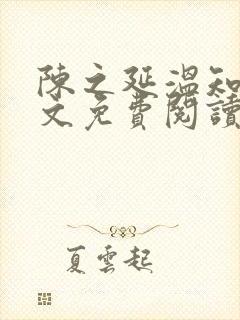 陳之延溫知
文免費閱讀
夏雲起